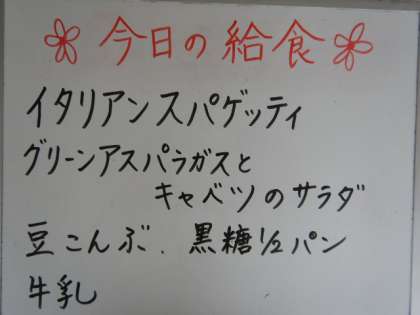 今日の給食
イタリアンスパゲッティ
グリーンアスパラガスと
キャベツのサラダ
豆こんぶ、黒糖1/2パン
牛乳